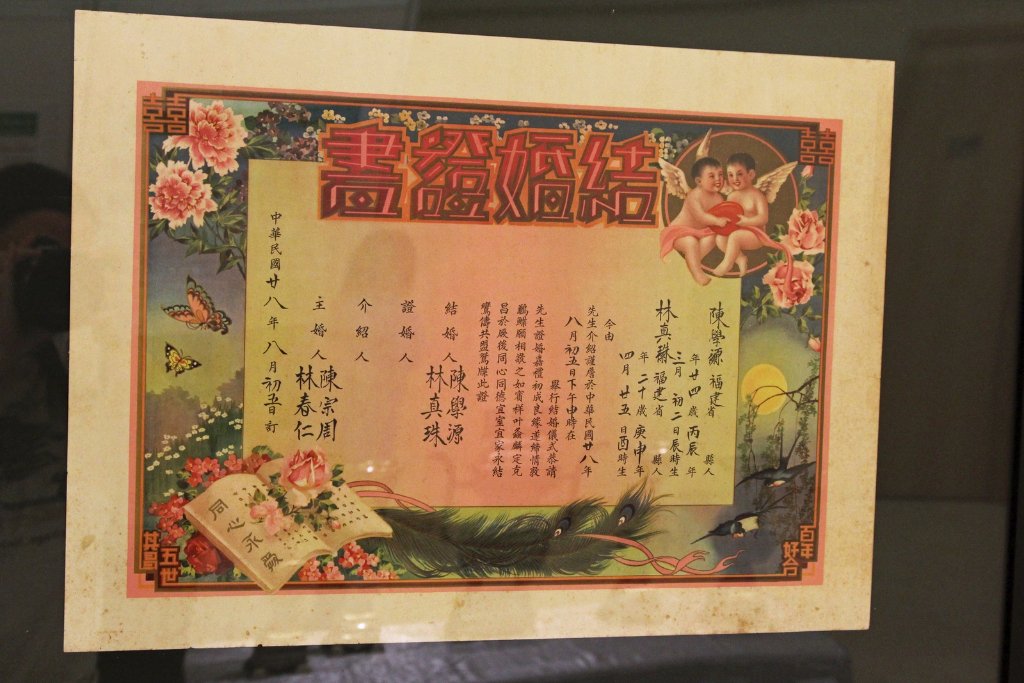 囍
囍
結婚證書
陳學源 福建省 縣人
年廿四歲丙辰年
三月初二日辰時生
林真珠 福建省 縣人
年二十歲庚申年
四月廿五日酉時生
今由
先生介紹謹詹於中華民國廿八年
八月初五日下午申時在
舉行結婚儀式恭請
先生證婚嘉禮初成良緣遂締情敦
鶼鰈願相敬之如賓祥叶螽麟定克
昌於厥後同心同德宜室宜家永結
鸞儔共盟鴛牒此證
結婚人 陳學源
林真珠
證婚人
介紹人
主婚人 陳宗周
林春仁
中華民國廿八年八月初五日訂
同心永愛
百年好合
五世其昌